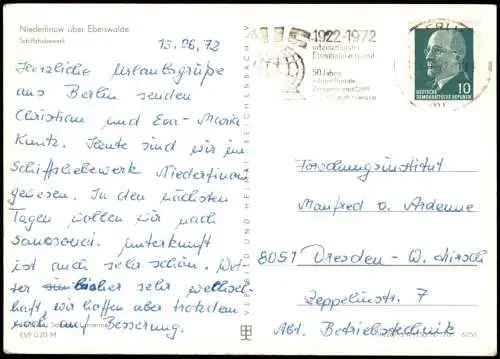 Niederfinow über Eberswalde
Schiffshebewerk
13.06.72
Herzliche Urlaubsgrüße
aus Berlin senden
Christian und Eva-Maria
Kuntz. Heute sind wir im
Schiffshebewerk Niederfinow
gewesen. In den nächsten
Tagen wollen wir nach
Sanssouci. Unterkunft
ist auch sehr schön. Wet-
ter bisher sehr wechsel-
haft, wir hoffen aber trotzdem
noch auf Besserung.
EVP 0,20 M
VERLAG BILD UND HEIMAT REICHENBACH
1922-1972
internationaler
Eisenbahnverband
50 Jahre
10
DEUTSCHE
DEMOKRATISCHE REPUBLIK
Forschungsinstitut
Manfred v. Ardenne
8051 Dresden - W. Hirsch
Zeppelinstr. 7
Abt. Betriebstechnik